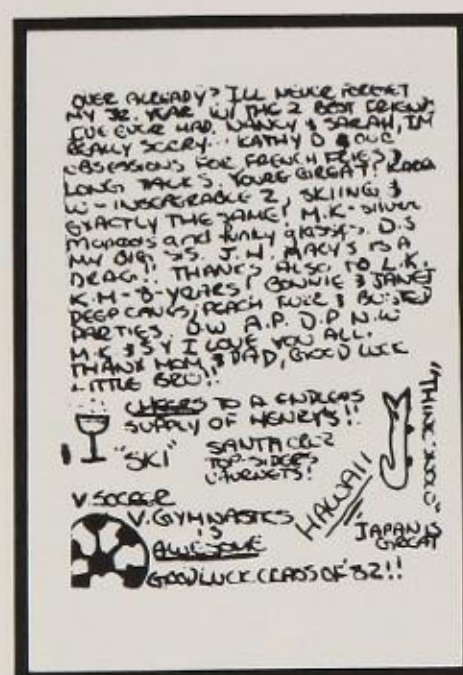 OVER ALREADY? I'LL NEVER FORGET
MY JR. YEAR W/ THE 2 BEST FRIENDS
I'VE EVER HAD. NANCY & SARAH, I'M
REALLY SORRY... KATHY D & OUR
OBSESSIONS FOR FRENCH FRIES &
LONG TALKS. YOU'RE GREAT!
W- INSEPARABLE 2, SKIING &
EXACTLY THE SAME! M.K- silver
Mopeds and funky glasses. D.S
MY BIG SIS. J.H. MACY'S IS A
DRAG!! THANKS ALSO TO L.K.
K.M-8-YEARS! BONNIE & JANET
PEACH FUZZ & BUSTED
PARTIES. D.W A.P. J.P N.W
M.K & SY I LOVE YOU ALL.
THANX MOM & DAD, GOOD LUCK
LITTLE BRO!!
CHEERS TO A ENDLESS
SUPPLY OF HENRY'S!!
"SKI"
SANTA CRUZ
TOP-SIDERS
HAWAII
"THINK
JAPAN IS
GREAT
V SOCCER
V. GYMNASTICS
IS
AWESOME
GOOD LUCK CLASS OF '82!!